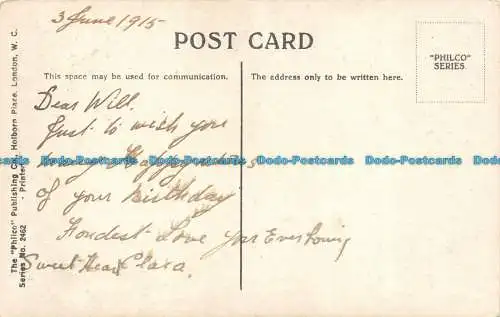 3 June 1915
POST CARD
"PHILCO"
SERIES.
This space may be used for communication.
The address only to be written here.
Dear Will.
Just to wish you
many Happy returns
of your birthday
Fondest Love your Ever loving
Sweet Heart Clara.
The "Philco" Publishing Co., Holborn Place, London, W. C.
Series No. 2462 - Printed
Dodo-Postcards Dodo-Postcards Dodo-Postcards Dodo-Postcards Dodo-Postcards